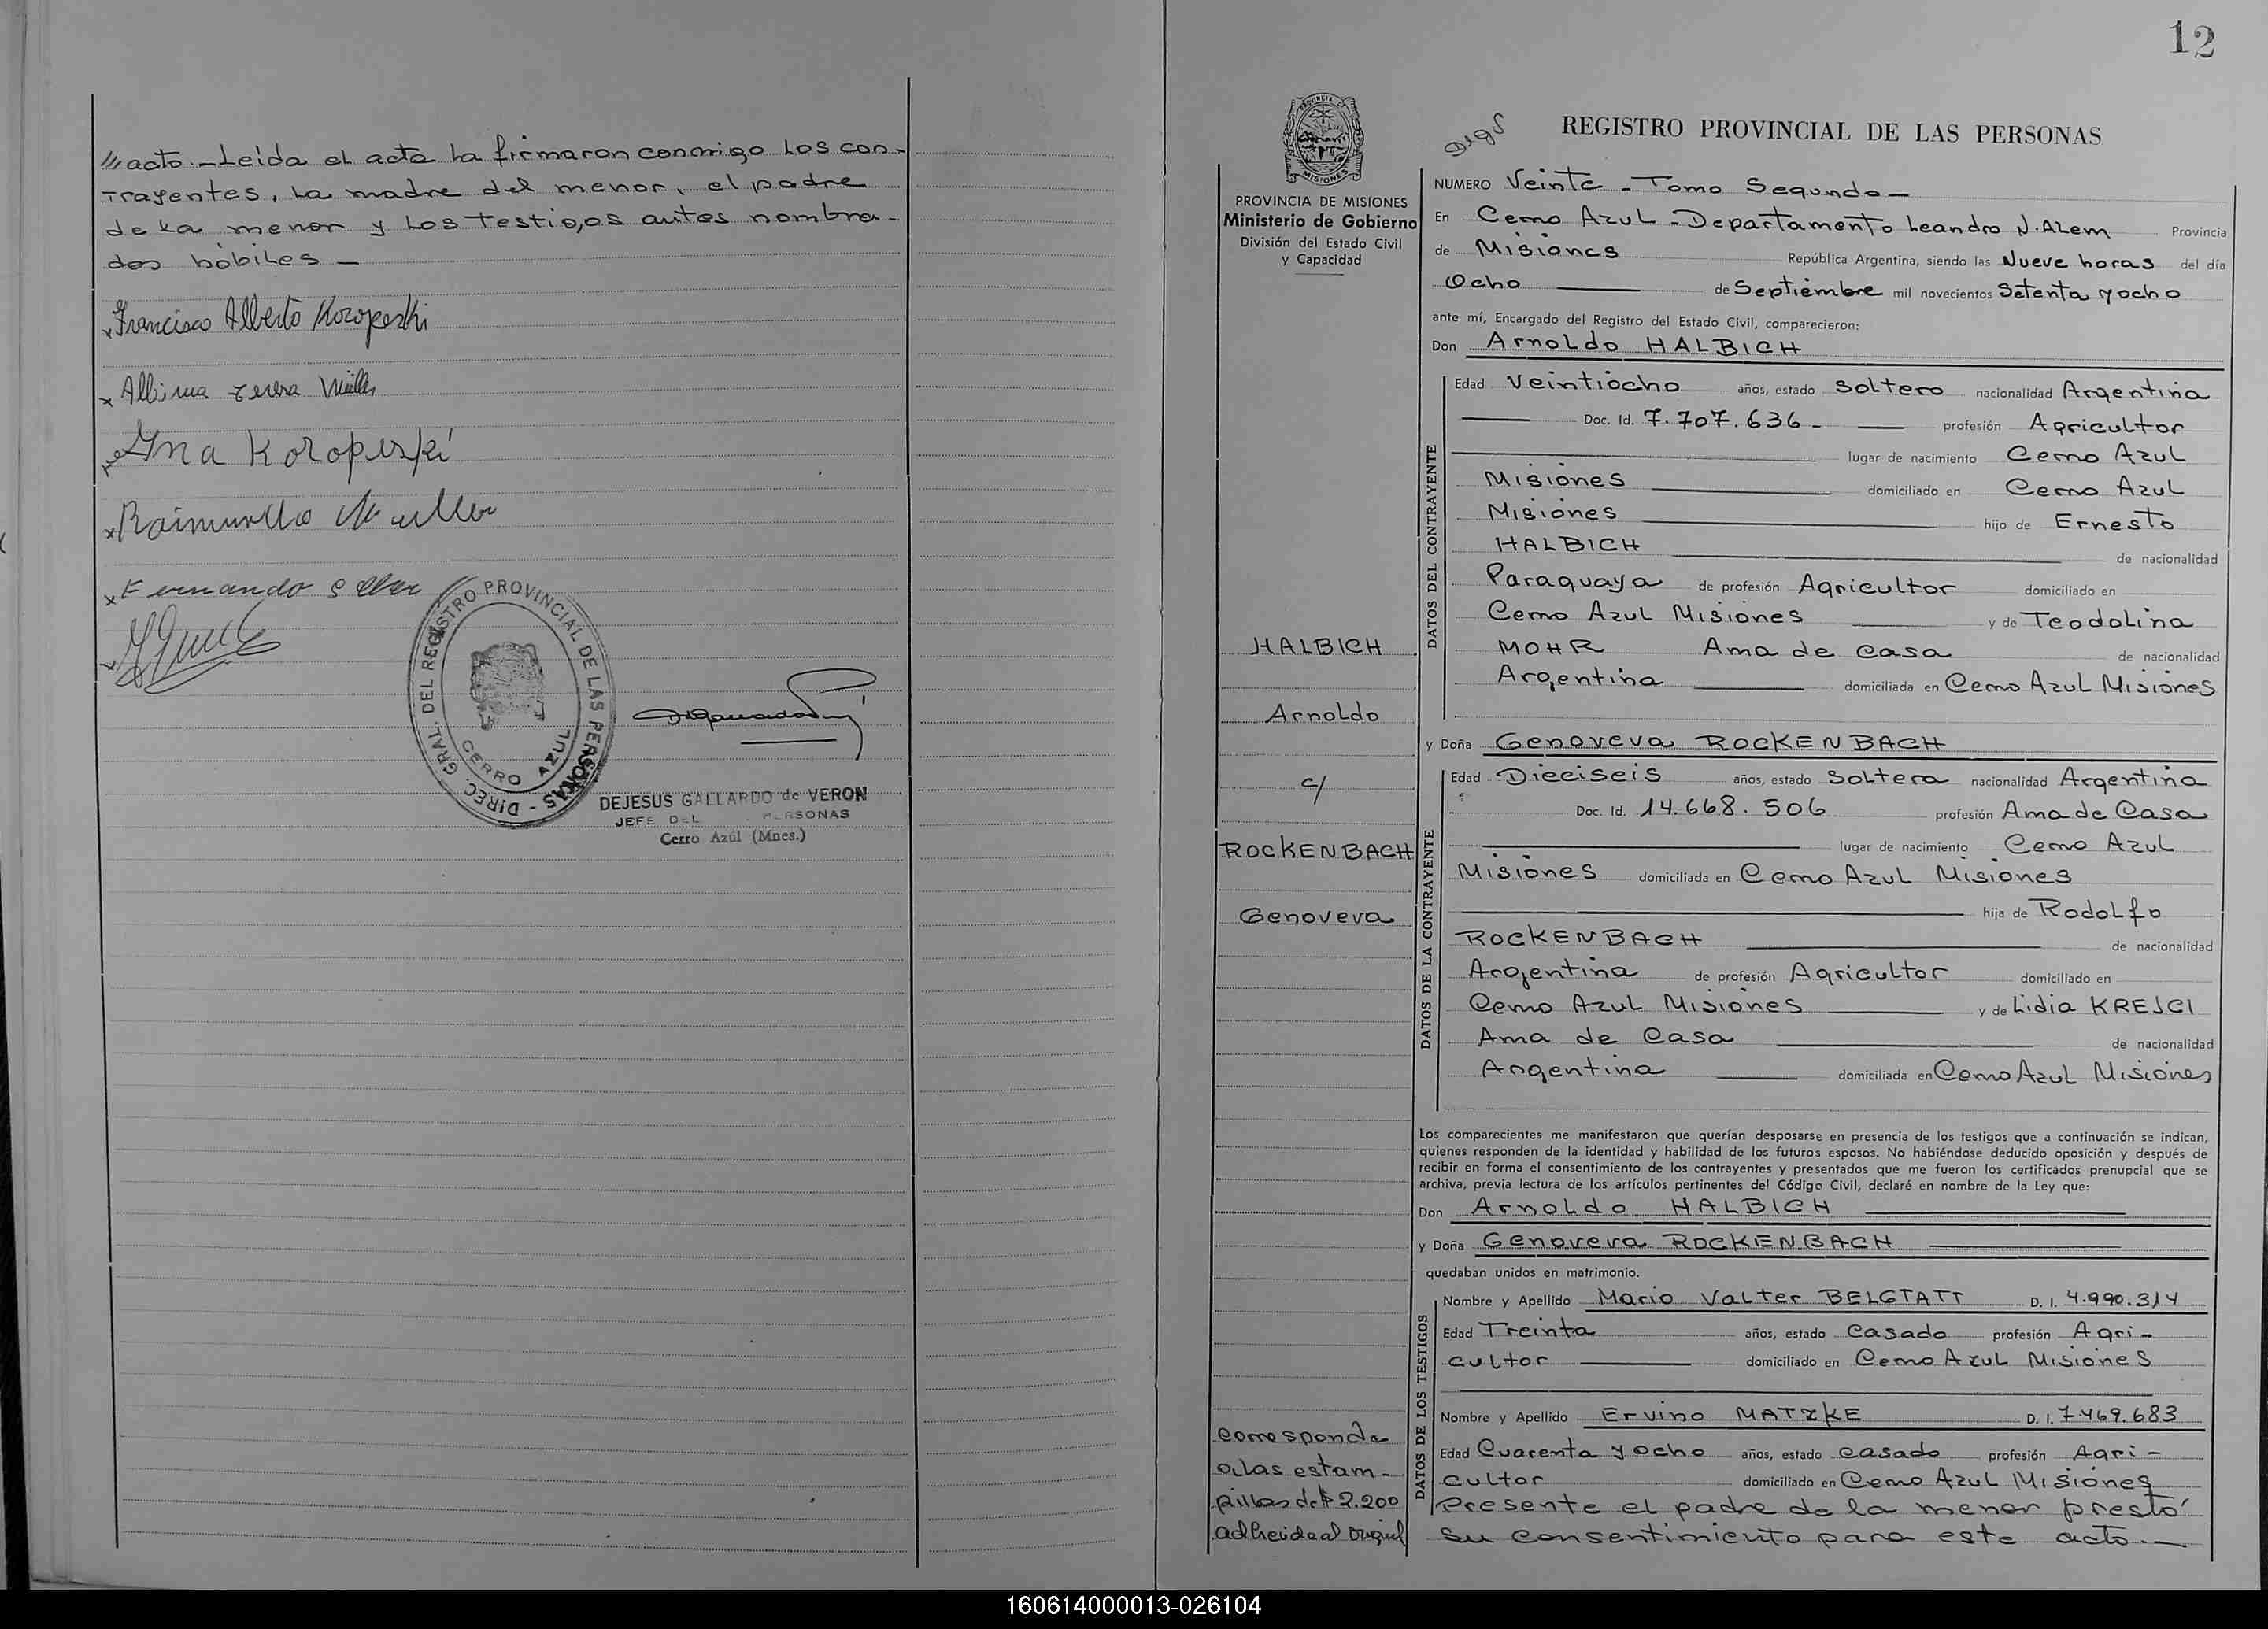 // acto.- Leida el acta la firmaron conmigo los con-
trayentes, la madre del menor, el padre
de la menor y los testigos antes nombra-
dos hábiles —
x Francisco Alberto Koropeski
x Albina Teresa Müller
x Ana Koropeski
x Raimundo Muller
x Fernando
DIREC. GRAL. DEL REGISTRO PROVINCIAL DE LAS PERSONAS -
CERRO AZUL
DEJESUS GALLARDO de VERON
JEFE DEL PERSONAS
Cerro Azúl (Mnes.)
12
PROVINCIA DE MISIONES
Ministerio de Gobierno
División del Estado Civil
y Capacidad
HALBICH
Arnoldo
c/
ROCKENBACH
Genoveva
Corresponde
a las estam-
pillas de $ 2.200
adherida al Original
REGISTRO PROVINCIAL DE LAS PERSONAS
NUMERO Veinte - Tomo Segundo —
En Cerro Azul - Departamento Leandro N. Alem Provincia
de Misiones República Argentina, siendo las Nueve horas del día
Ocho — de Septiembre mil novecientos Setenta y ocho
ante mí, Encargado del Registro del Estado Civil, comparecieron:
Don Arnoldo HALBICH
DATOS DEL CONTRAYENTE
Edad Veintiocho años, estado Soltero nacionalidad Argentina
— Doc. Id. 7.707.636 - — profesión Agricultor
— lugar de nacimiento Cerro Azul
Misiones — domiciliado en Cerro Azul
Misiones — hijo de Ernesto
HALBICH — de nacionalidad
Paraguaya de profesión Agricultor domiciliado en
Cerro Azul Misiones — y de Teodolina
MOHR Ama de casa de nacionalidad
Argentina — domiciliada en Cerro Azul Misiones
y Doña Genoveva ROCKENBACH
DATOS DE LA CONTRAYENTE
Edad Dieciseis años, estado Soltera nacionalidad Argentina
Doc. Id. 14.668.506 profesión Ama de Casa
— lugar de nacimiento Cerro Azul
Misiones domiciliada en Cerro Azul Misiones
— hija de Rodolfo
ROCKENBACH — de nacionalidad
Argentina de profesión Agricultor domiciliado en
Cerro Azul Misiones — y de Lidia KREJCI
Ama de Casa — de nacionalidad
Argentina — domiciliada en Cerro Azul Misiones
Los comparecientes me manifestaron que querían desposarse en presencia de los testigos que a continuación se indican,
quienes responden de la identidad y habilidad de los futuros esposos. No habiéndose deducido oposición y después de
recibir en forma el consentimiento de los contrayentes y presentados que me fueron los certificados prenupcial que se
archiva, previa lectura de los artículos pertinentes del Código Civil, declaré en nombre de la Ley que:
Don Arnoldo HALBICH —
y Doña Genoveva ROCKENBACH —
quedaban unidos en matrimonio.
DATOS DE LOS TESTIGOS
Nombre y Apellido Mario Valter BELGTATT D. I. 4.990.314
Edad Treinta años, estado Casado profesión Agri-
cultor — domiciliado en Cerro Azul Misiones
Nombre y Apellido Ervino MATZKE D. I. 7.469.683
Edad Cuarenta y ocho años, estado casado profesión Agri-
cultor domiciliado en Cerro Azul Misiones
Presente el padre de la menor prestó
su consentimiento para este acto. —
160614000013-026104